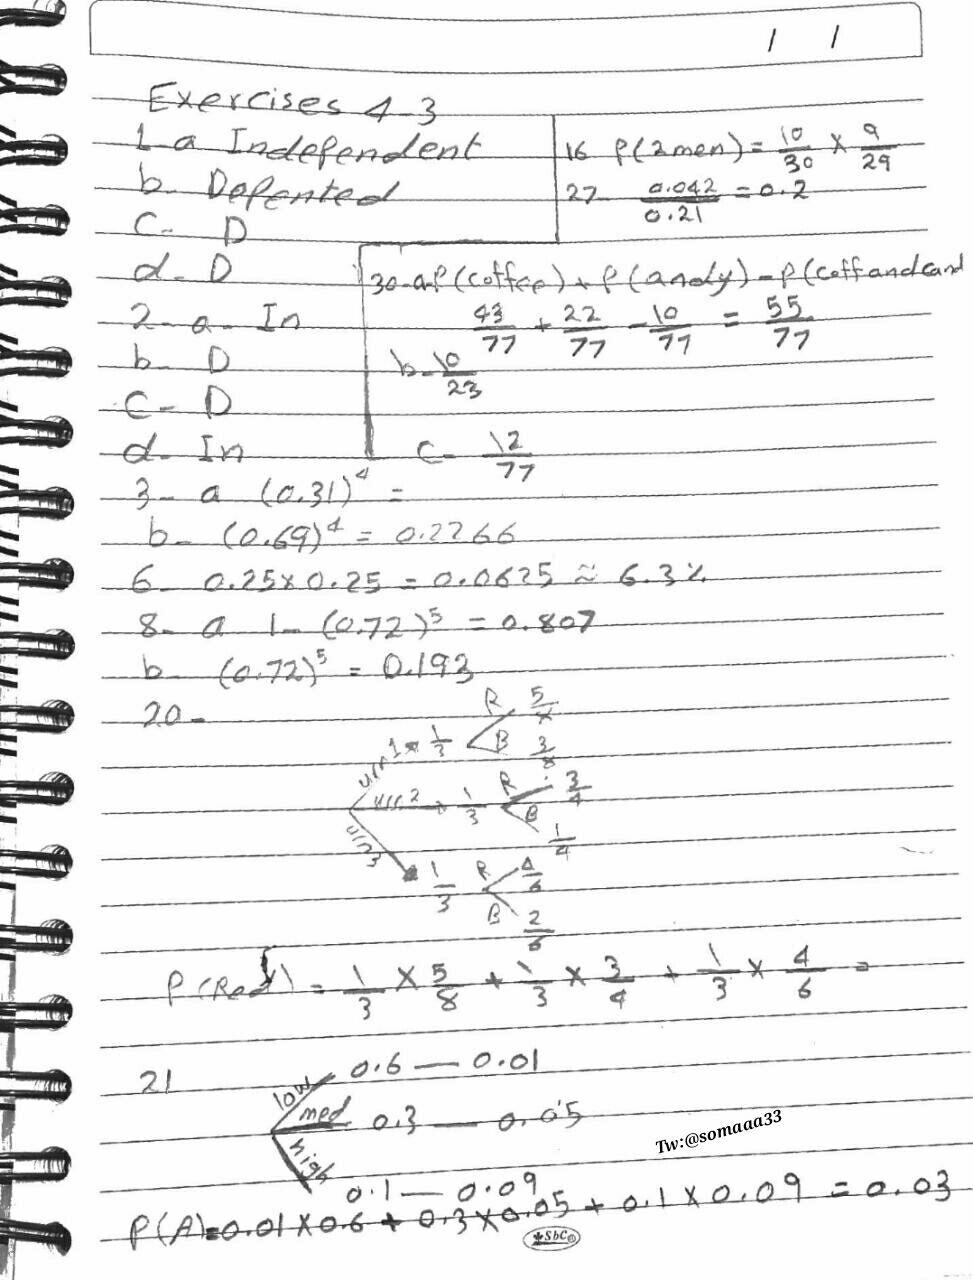 / /
Exercises 4-3
1 a Independent
b- Depented
C- D
d- D
2- a- In
b- D
C- D
d- In
16 P(2men) = 10/30 × 9/29
27- 0.042/0.21 = 0.2
30-a-P(coffee) + P(andy) - P(coffandcand
43/77 + 22/77 - 10/77 = 55/77
b- 10/23
C- 12/77
3- a (0.31)^4 =
b- (0.69)^4 = 0.2266
6- 0.25×0.25 = 0.0625 ≈ 6.3%
8- a 1- (0.72)^5 = 0.807
b (0.72)^5 = 0.193
20-
urn1 1/3 R 5/8
B 3/8
urn2 1/3 R 3/4
B 1/4
urn3 1/3 R 4/6
B 2/6
P(Red) = 1/3 × 5/8 + 1/3 × 3/4 + 1/3 × 4/6 =
21
low 0.6 — 0.01
med 0.3 — 0.05
high 0.1 — 0.09
Tw:@somaaa33
P(A)=0.01×0.6 + 0.3×0.05 + 0.1×0.09 = 0.03
SbC